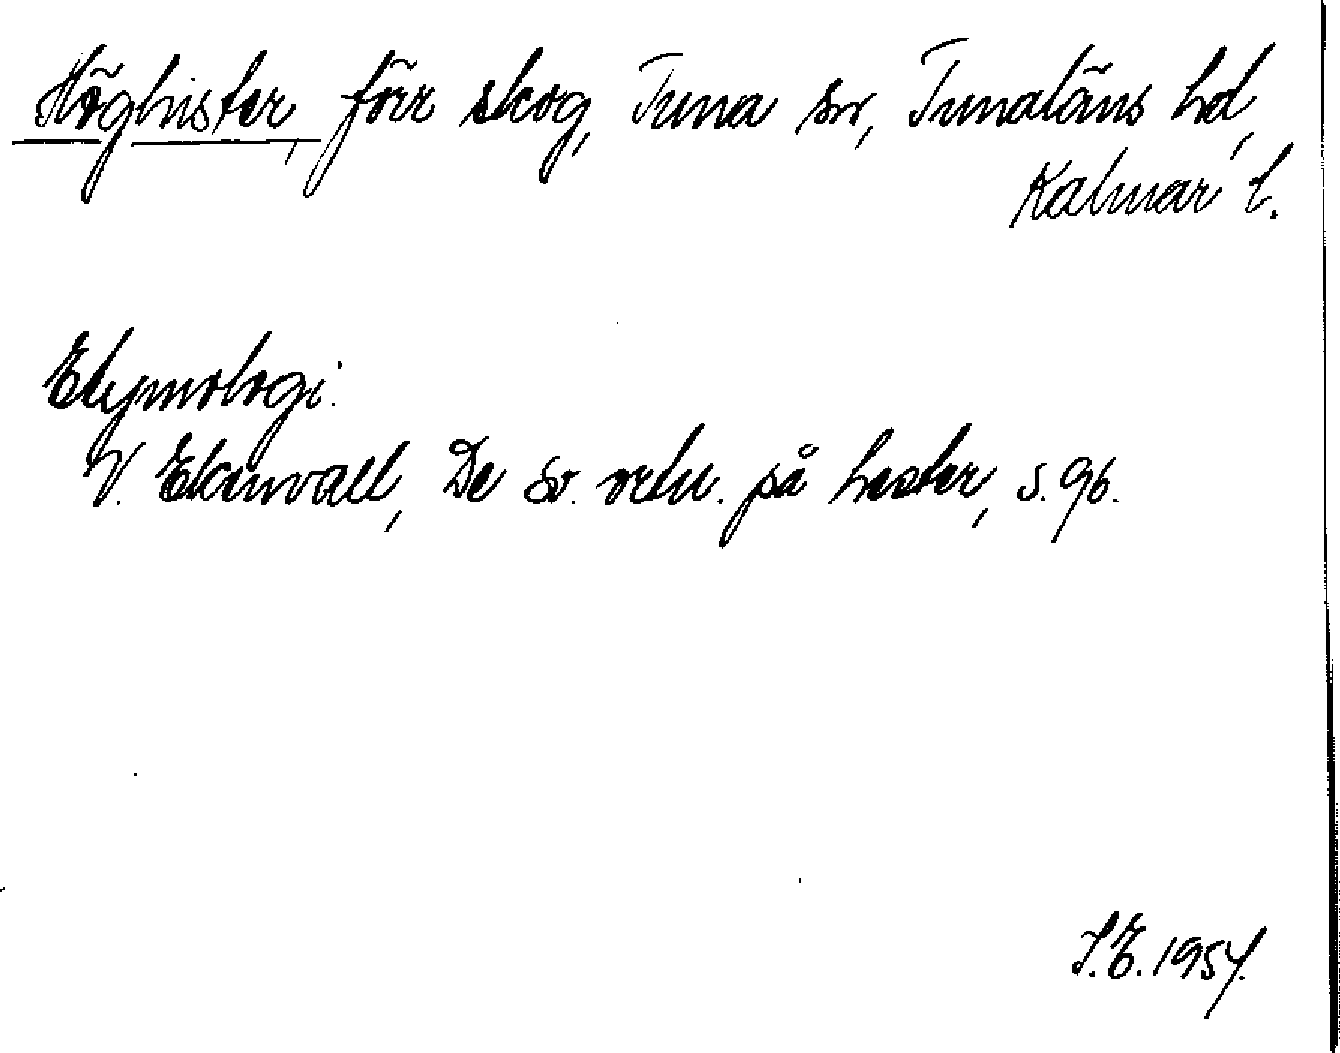 Höghister, förr skog, Tuna sn, Tunaläns hd,
Kalmar l.
Etymologi:
V. Ekenvall, De sv. ortn. på hester, s. 96.
S.E. 1954.